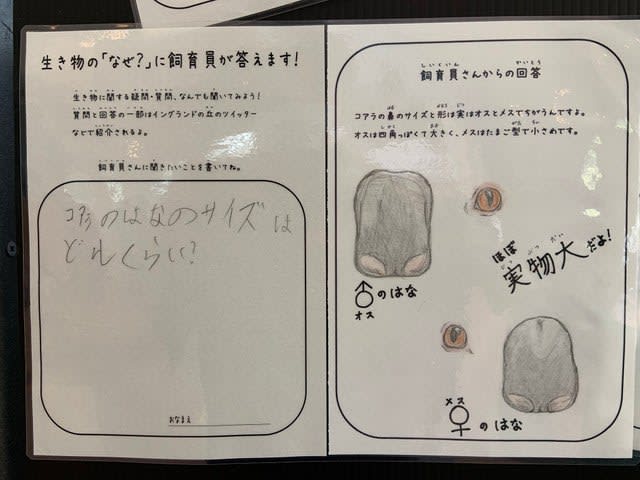 生き物の「なぜ?」に飼育員が答えます!
生き物に関する疑問・質問、なんでも聞いてみよう!
質問と回答の一部はイングランドの丘のツイッター
などで紹介されるよ。
飼育員さんに聞きたいことを書いてね。
コアラのはなのサイズは
どれくらい?
おなまえ
飼育員さんからの回答
コアラの鼻のサイズと形は実はオスとメスでちがうんですよ。
オスは四角っぽくて大きく、メスはたまご型で小さめです。
♂のはな
オス
ほぼ
実物大だよ!
メス
♀のはな